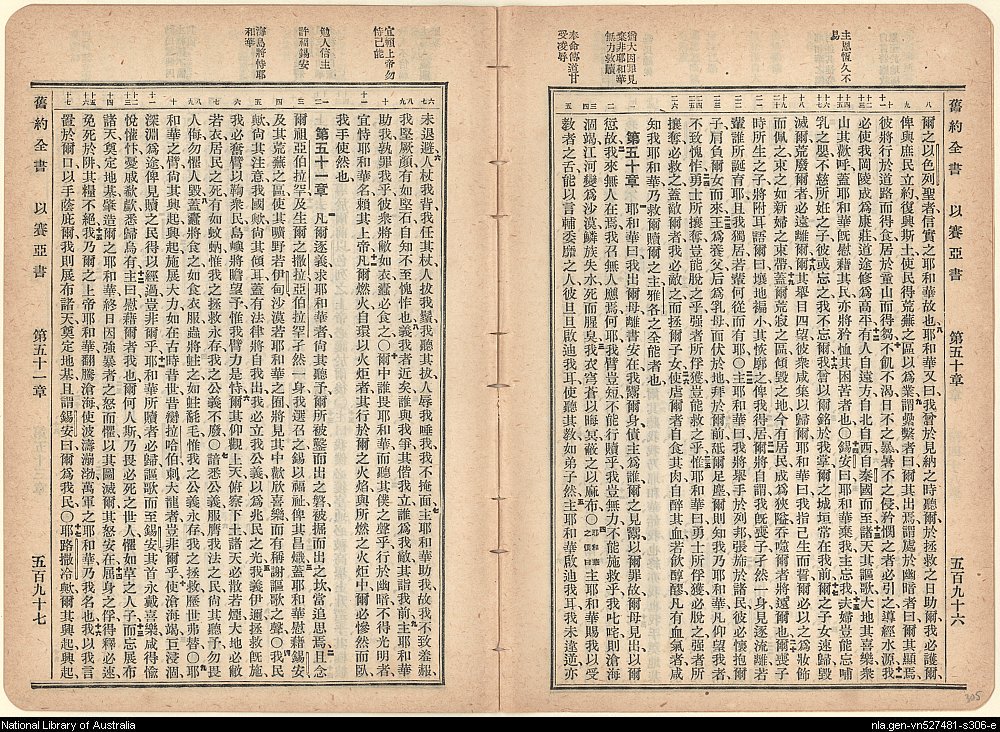 舊約全書 以賽亞書 第五十章 五百九十六
主恩恆久不易
猶大因罪見棄非耶和華無力救贖
奉命傳道甘受凌辱
爾之以色列聖者信實之耶和華故也耶和華又曰我嘗於見納之時聽爾於拯救之日助爾我必護爾
俾與庶民立約復興斯土使民得荒蕪之區以爲業謂縶繫者曰爾其出焉謂處於幽暗者曰爾其顯焉
彼將行於道路而得食居於童山而得芻不飢不渴日不之暴暑不之侵矜憫之者必引之導經水源我
必使我岡陵成爲康莊道途修爲高平有人自遠方自北自西自秦國而至諸天其謳歌大地其喜樂衆
山其歡呼蓋耶和華旣慰藉其民亦將矜恤其困苦者也〇錫安曰耶和華棄我主忘我夫婦豈能忘哺
乳之嬰不慈所姙之子彼或忘之我不忘爾我嘗以爾銘於我掌爾之城垣常在我前爾之子女速歸毀
滅爾荒廢爾者必遠離爾爾其舉目四望彼衆咸集以歸爾耶和華曰我指己生而誓爾必以之爲妝飾
而佩之束之如新婦之束帶蓋爾荒寂之區傾毀之地今有居民成爲狹隘吞噬爾者將遠爾也爾喪子
時所生之子將附耳語爾曰壤地褊小其恢廓之俾我得居爾將自謂我旣喪子孑然一身見逐流離若
輩誰所誕育耶且我獨居若輩何從而有耶〇主耶和華曰我將舉手於列邦張旆於諸民彼必懷抱爾
子肩負爾女而來王爲養父后爲乳母而伏於地拜於爾前舐爾足塵爾則知我乃耶和華凡仰望我者
不致愧怍勇士所攘奪豈能脫之乎強者所俘獲豈能釋之乎惟耶和華曰勇士所俘獲必脫之強者所
攘奪必救之蓋敵爾者我必敵之而拯爾子女使虐爾者自食其肉自醉其血若飲醇醪凡有血氣者咸
知我耶和華乃救爾贖爾之主雅各之全能者也
第五十章 耶和華曰我出爾母離書安在我鬻爾身債主爲誰爾之見鬻以爾罪故爾母見出以爾
愆故我來無人在焉我召無人應焉何耶我臂豈短不能行贖乎我豈無力不能施救乎我叱咤滄海
涸竭江河變爲沙漠鱗族失水死而腥臭我衣穹蒼以晦冥蔽之以麻布〇主耶和華賜我以受
敎者之舌能以言輔委靡之人彼旦旦啟迪我耳使聽其敎如弟子然主耶和華啟迪我耳我未違逆亦
舊約全書 以賽亞書 第五十一章 五百九十七
宜賴上帝勿恃己能
勉人信主許福錫安
海島將恃耶和華
未退避人杖我背我任其杖人拔我鬚我聽其拔人辱我唾我我不掩面主耶和華助我故我不致羞赧
我堅厥顏有如堅石自知不至愧怍也義我者近矣誰與我爭其偕我立誰爲我敵其詣我前主耶和華
助我孰罪我乎彼衆將敝如衣蠹必食之〇爾中誰畏耶和華而聽其僕之聲乎行於幽暗不得光明者
宜恃耶和華名賴其上帝凡爾燃火自環以火炬者其行於爾之火焰與所燃之火炬中爾必慘然而臥
我手使然也
第五十一章 凡爾逐義求耶和華者尙其聽予爾所被鑿而出之磐被掘而出之坎當追思焉且念
爾祖亞伯拉罕及生爾之撒拉亞伯拉罕孑然一身我選召之錫以福祉俾其昌熾蓋耶和華慰藉錫安
及其荒蕪之區使其曠野若伊甸沙漠若耶和華之囿將見其中歡欣喜樂而有稱謝謳歌之聲〇我民
歟尙其注意我國歟尙其傾耳蓋有法律將自我出我必立我公義以爲兆民之光我義伊邇拯救旣施
我必奮臂以鞫衆民島嶼將瞻望予惟我臂力是恃爾其仰觀上天俯察下土諸天必散若煙大地必敝
若衣居民之死有如蚊蚋惟我之拯救永存我之公義不廢〇諳悉公義服膺我法之民尙其聽予勿畏
人侮勿懼人毀蓋蠹將食之如食衣服蟲將蛀之如蛀毳毛惟我之公義永存我之拯救歷世弗替〇耶
和華之臂尙其興起興起施展大力如在古時昔世昔戮拉哈伯刺大龍者豈非爾乎使滄海竭巨浸涸
深淵爲途俾見贖之民得以經過豈非爾乎耶和華所贖者必歸謳歌而至錫安其首永戴喜樂咸得愉
悅懽忭憂戚欷歔悉歸烏有主曰慰藉爾者我也爾何人斯乃畏必死之世人懼如草之人子而忘展布
諸天奠定地基肇造爾之耶和華終日因強暴者之怒而懼以其圖滅爾其怒安在屈身之俘得釋必速
免死於阱其糧不絕我乃爾之上帝耶和華翻騰滄海使波濤澎渤萬軍之耶和華乃我名也我以我言
置於爾口以手蔭庇爾我則展布諸天奠定地基且謂錫安曰爾爲我民〇耶路撒冷歟爾其興起興起
National Library of Australia
nla.gen-vn527481-s306-e